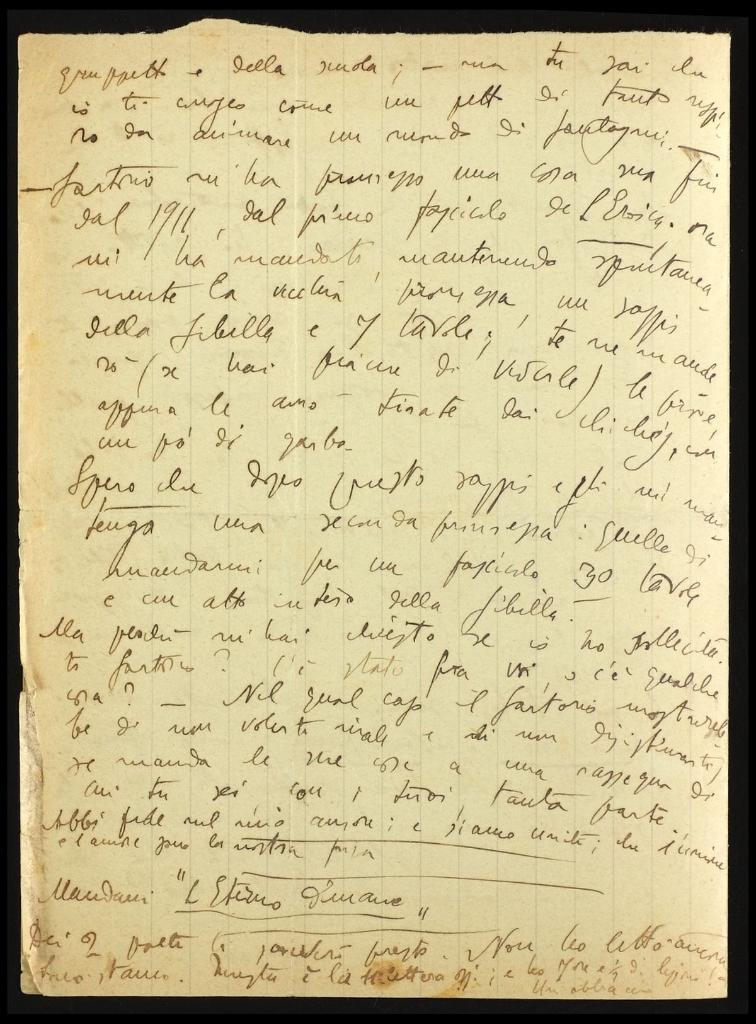 gruppetto e della scuola; – ma tu sai che
io ti come un di tanto
ro da animare un mondo di fantasmi. –
– Sartorio mi ha promesso una cosa sua fin
dal 1911, dal primo fascicolo de L'Eroica. ora
mi ha mandato, mantenendo spontanea-
mente la vecchia promessa, un saggio
della Sibilla e 7 tavole; te ne mande
rò (se hai piacere di vederle) le prove,
appena le avrò tirate dai clichés, con
un pò di garbo.
Spero che dopo questo saggio egli mi man-
tenga una seconda promessa: quella di
mandarmi per un fascicolo 30 tavole
e un atto intero della Sibilla. –
Ma perchè mi hai chiesto se io ho sollecita-
to Sartorio? C'è stato fra voi, o c'è qualche
cosa? – Nel qual caso il Sartorio mostrereb
be di non volerti male e di non disistimarti,
se manda le sue cose a una rassegna di
cui tu sei con i tuoi, tanta parte
Abbi fede nel mio amore; e siamo uniti; che l'unione
e l'amore sono la nostra forza
Mandami "L'Eterno Dimane"
Dei 2 poeti ti presto. Non ho letto ancora
sono stanco. Questa è la lettera oggi; e ho di lezione! –
Un abbraccio